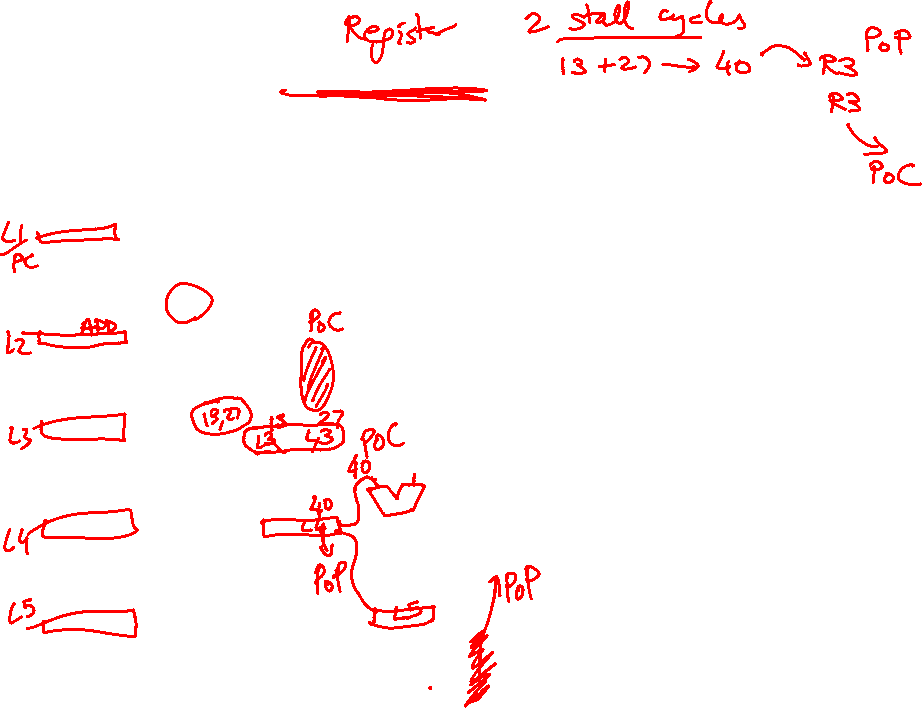 Register
2 stall cycles
13 + 27 → 40
R3
PoP
R3
PoC
L1
PC
L2
ADD
PoC
L3
13,27
13
27
L3
L3
PoC
40
L4
40
L4
PoP
L5
L5
PoP